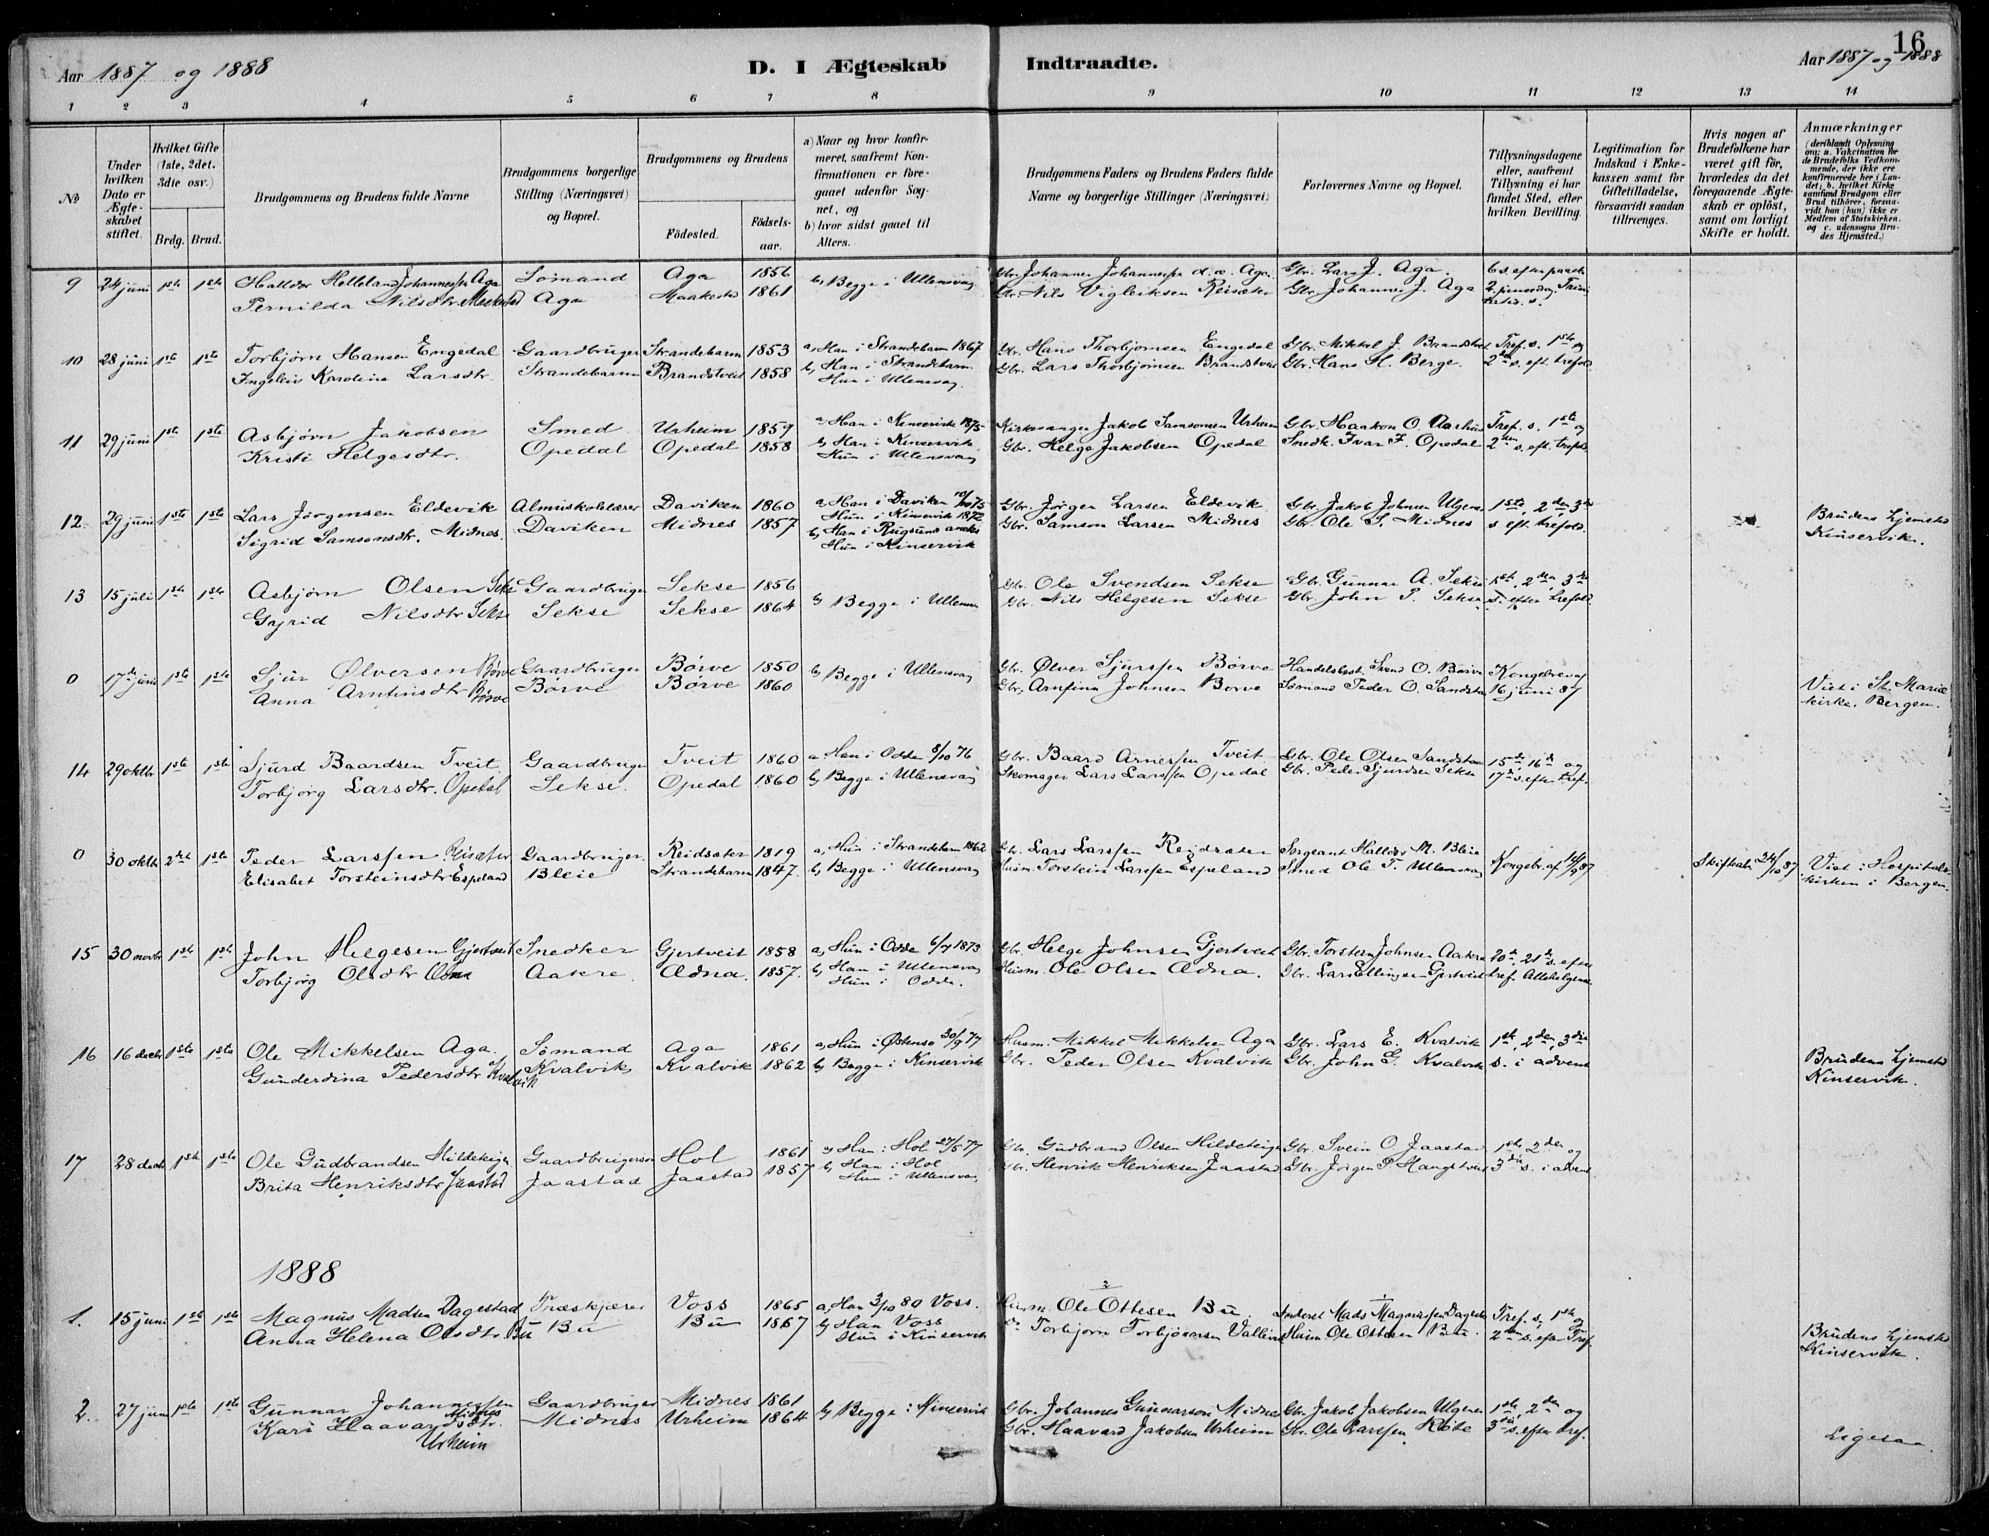 16
Aar 1887 og 1888
D. I Ægteskab
Indtraadte.
Aar 1887 og 1888
1 2 3 4 5 6 7 8 9 10 11 12 13 14
№
Under hvilken Dato er Ægteskabet stiftet.
Hvilket Gifte (1ste, 2det, 3die osv.)
Brdg. Brud.
Brudgommens og Brudens fulde Navne
Brudgommens borgerlige Stilling (Næringsvei) og Bopæl.
Brudgommens og Brudens
Fødested.
Fødselsaar.
a) Naar og hvor konfirmeret, saafremt Konfirmationen er foregaaet udenfor Sognet, og
b) hvor sidst gaaet til Alters.
Brudgommens Faders og Brudens Faders fulde Navne og borgerlige Stillinger (Næringsvei)
Forlovernes Navne og Bopæl.
Tillysningsdagene eller, saafremt Tillysning ei har fundet Sted, efter hvilken Bevilling.
Legitimation for Indskud i Enkekassen samt for Giftetilladelse, forsaavidt saadan tiltrænges.
Hvis nogen af Brudefolkene har været gift før, hvorledes da det foregaaende Ægteskab er opløst, samt om lovligt Skifte er holdt.
Anmærkninger
(deriblandt Oplysning om: a. Vakcination for de Brudefolks Vedkommende, der ikke ere konfirmerede her i Landet; b. hvilket Kirkesamfund Brudgom eller Brud tilhører, forsaavidt han (hun) ikke er Medlem af Statskirken, og c. udensogns Brudes Hjemsted.)
9 24 juni 1ste 1ste Halldor Helleland Johannessøn Aga Sømand Aga 1856 b, Begge i Ullensvang Gbr. Johannes Johannessøn d. æ. Aga. Gbr. Lars J. Aga. 6 s. efter paaske
Pernilda Nilsdtr. Maakestad Aga Maakestad 1861 Gbr. Nils Vigleiksen Reisæter Gbr. Johannes J. Aga 2. pinsedag, Trinitatis s.
10 28 juni 1ste 1ste Torbjørn Hansen Engedal Gaardbruger Strandebarm 1853 a, Han i Strandebarm 1867 Gbr. Hans Thorbjørnsen Engedal Gbr. Mikkel J. Brandstveit Tref. s. 1ste og
Ingeleiv Karolina Larsdtr. Strandebarm Brandstveit 1858 b, Han i Strandebarm. Gbr. Lars Thorbjørnsen Brandstveit Gbr. Hans H. Berge. 2den s. eft. trefold.
Hun i Ullensvang.
11 29 juni 1ste 1ste Asbjørn Jakobsen Smed Urheim 1859 a Han i Kinservik Kirkesanger Jakob Samsonsen Urheim Gbr. Haakon O. Aarhus Tref. s. 1ste og
Kristi Helgesdtr. Opedal Opedal 1858 b, Han i Kinservik Gbr. Helge Jakobsen Opedal Snedk. Ivar I. Opedal 2den s. eft. trefold.
Hun i Ullensvang
12. 29 juni 1ste 1ste Lars Jørgensen Eldevik Almueskolelærer Daviken 1860 a Han i Daviken 10/10 75 Gbr. Jørgen Larsen Eldevik Gbr. Jakob Johnsen Ulgenes 1ste, 2den, 3die
Sigrid Samsonsdtr. Midnes. Daviken Midnes 1857 Hun i Kinservik 1872 Gbr. Samson Larsen Midnes Gbr. Ole S. Midnes s. eft. trefold. Brudens hjemsted
b, Han i Rugsund annex Kinservik.
Hun i Kinservik
13 15 juli 1ste 1ste Asbjørn Olsen Sekse Gaardbruger Sekse 1856 b, Begge i Ullensvang Gbr. Ole Svendsen Sekse Gbr. Gunnar A. Sekse 1ste, 2den, 3die
Gyrid Nilsdtr Sekse Sekse Sekse 1864 Gbr. Nils Helgesen Sekse Gbr. John P. Sekse s. efter trefold.
0 17de juni 1ste 1ste Sjur Ølversen Børve Gaardbruger Børve 1850 b, Begge i Ullensvang Gbr. Ølver Sjurssøn Børve Handelsbest. Svend O. Børve Kongebrev af
Anna Arnfinsdtr Børve Børve Børve 1860 Gbr. Arnfinn Johnsen Børve Sømand Peder O. Sandstø 16 juni 87 Viet i St. Mariæ
kirke, Bergen.
14 29 oktbr 1ste 1ste Sjurd Baardsen Tveit Gaardbruger Tveit 1860 a Han i Odde 8/10 76 Gbr. Baard Arnessøn Tveit Gbr. Ole Olsen Sandstø 15de, 16de og
Torbjørg Larsdtr. Opedal Sekse. Opedal 1860 b, Begge i Ullensvang Skomager Lars Larssøn Opedal Gbr. Peder Sjurdsen Sekse 17de s. efter tref.
0 30 oktbr 2det 1ste Peder Larssen Reisæter Gaardbruger Reidsæter 1819 a, Hun i Strandebarm 1862 Gbr. Lars Larssen Reidsæter Sergeant Halldor M. Bleie Kongebr. af 16/9 87 Skiftebr. 24/10 87 Viet i Hospitals-
Elisabet Torsteinsdtr Espeland Bleie Strandebarm 1847. b, Begge i Ullensvang Husm. Torstein Larssen Espeland Smed Ole T. Ullensvang kirken i Bergen.
15 30 novbr 1ste 1ste John Helgesen Gjertveit Snedker Gjertveit 1858 a, Hun i Odde 6/7 1873 Gbr. Helge Johnsen Gjertveit Gbr. Torstein Johnsen Aakre 20de, 21de s. efter
Torbjørg Olsdtr Ædna Aakre. Ædna. 1857. b, Han i Ullensvang Husm. Ole Olsen Ædna. Gbr. Lars Ellingsen Gjertveit tref. Allehelgens
Hun i Odde.
16 16 decbr 1ste 1ste Ole Mikkelsen Aga. Sømand Aga 1861 a, Hun i Østensø 30/9 77 Husm. Mikkel Mikkelsen Aga Gbr. Lars E. Kvalvik 1ste, 2den, 3die
Gunderdina Pedersdtr Kvalvik Kvalvik Kvalvik 1862 b, Begge i Kinservik Gbr. Peder Olsen Kvalvik Gbr. John G. Kvalvik s. i advent Brudens hjemsted
Kinservik.
17 28 decbr 1ste 1ste Ole Gudbrandsen Hildeteigen Gaardbrugersøn Hol 1861 a, Han i Hol 27/5 77 Gbr. Gudbrand Olsen Hildeteigen Gbr. Svein O. Jaastad 1ste 2den og
Brita Henriksdtr Jaastad Jaastad Jaastad 1857 b, Han i Hol Gbr. Henrik Henriksen Jaastad Gbr. Jørgen P. Haugstveit 3die s. i advent
Hun i Ullensvang
1888
1. 15 juni 1ste 1ste Magnus Madsen Dagestad Træskjærer Voss 1865 a, Han 3/10 80 Voss. Husm. Ole Ottesen Bu. Inderst Mads Magnussen Dagestad Tref. s, 1ste og
Anna Helena Olsdtr. Bu Bu Bu 1867 b, Han Voss Torbjørn Torbjørnsen Husm. Ole Ottesen Bu. 2den s. efter Tref. Brudens hjemsted
Hun i Kinservik Kinservik.
2. 27 juni 1ste 1ste Gunnar Johannessen Midnes Gaardbruger Midnes 1861 b, Begge i Kinservik Gbr. Johannes Gunnarson Midnes Gbr. Jakob Jakobsen Ulgenes 1ste, 2den og
Kari Haavardsdtr. Urheim Midnes Urheim 1864 Gbr. Haavard Jakobsen Urheim Gbr. Ole Larssen Røte 3die s. efter tref. Ligesaa.